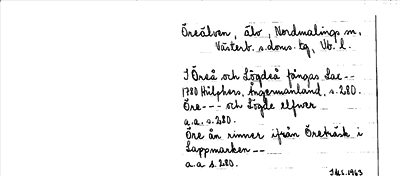 Öreälven, älv, Nordmalings sn,
Västerb. s. doms. tg, Vb. l.
I Öreå och Lögdeå fångas Lac--
1780 Hülphers, Ångermanland, s. 280.
Öre--- och Lögde elfwer
a.a. s. 280.
Öre ån rinner ifrån Öreträsk i
Lappmarken--
a.a s. 280.
1963